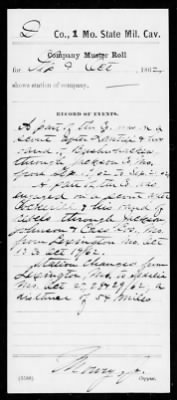 D Co., 1 Mo. State Mil. Cav.
Company Muster Roll
for Sep & Oct, 1862
shows station of company,
RECORD OF EVENTS.
A part of the Co. was on a
scout after
of Bushwhackers
through Jackson Co. Mo.
from
A part of the Co. was
engaged on a scout after
& his band of
rebels through Jackson
Johnson & Cass Cos. Mo.
from Lexington Mo. Oct
12 to Oct 19/62.
Station changed from
Lexington, Mo. to Sedalia
Mo. Oct 27, 28 & 29/62, a
distance of 54 miles
Mowry, Jr.
(556b) Copyist.